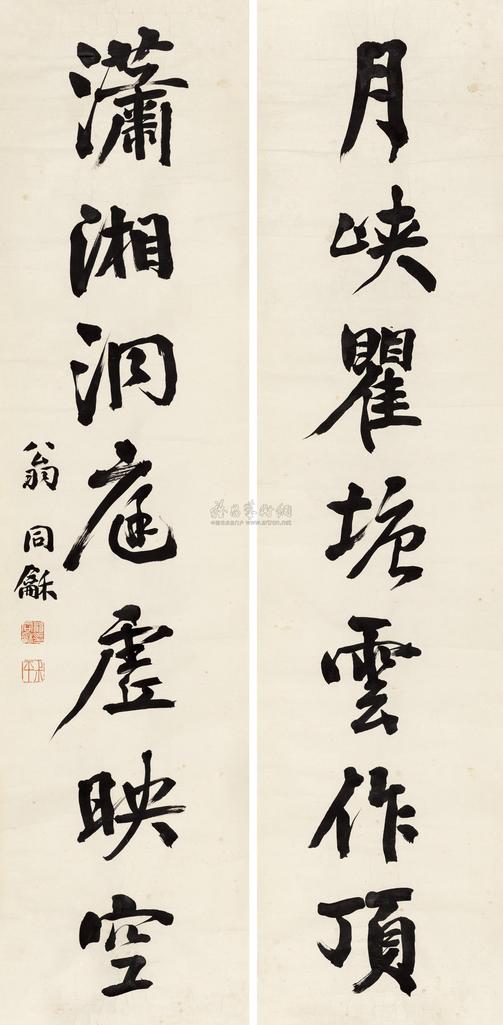 月峽瞿塘雲作頂
瀟湘洞庭虛映空
翁同龢
www.artron.net